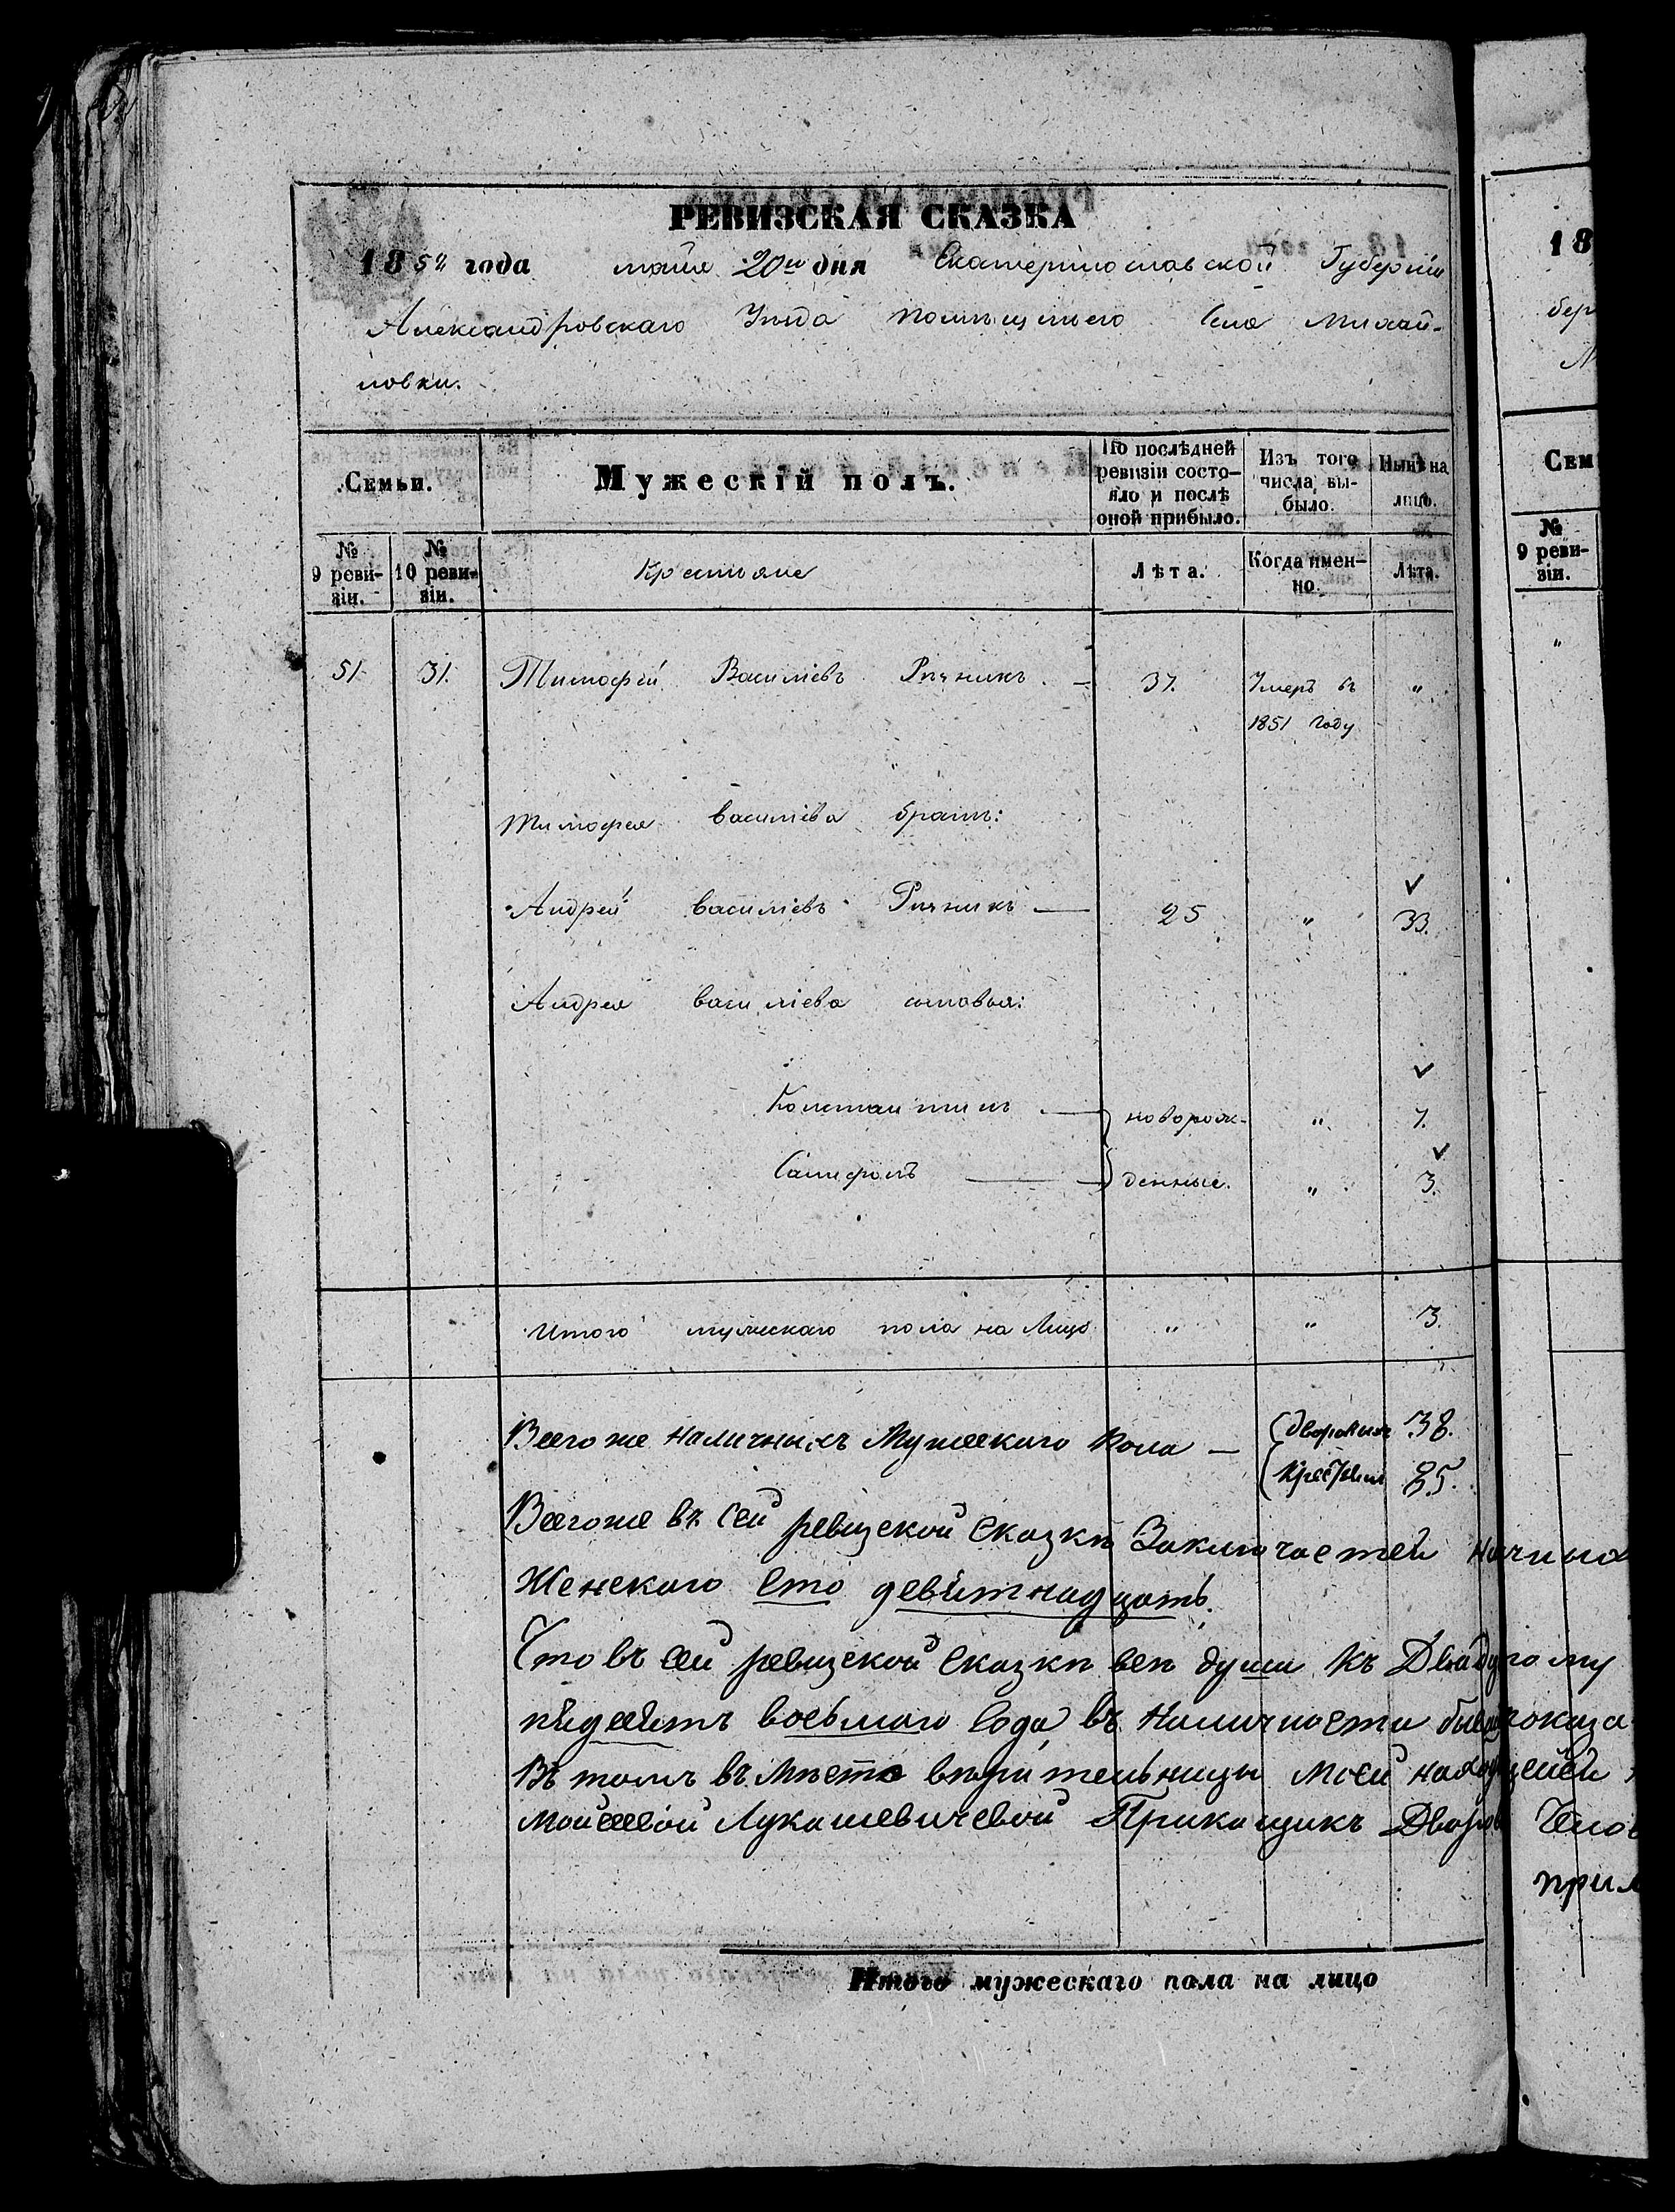 РЕВИЗСКАЯ СКАЗКА
1858 года мая 20го дня Екатеринославской Губерніи
Александровскаго Уѣзда помѣщичьего Села Михай-
ловки.
Семьи.
Мужескій полъ.
По послѣдней ревизіи состо-
яло и послѣ
оной прибыло.
Изъ того числа вы-
было.
Нынѣ на
лицо.
№
9 реви-
зіи.
№
10 реви-
зіи.
Крестьяне
Лѣта.
Когда имен-
но.
Лѣта.
51. 31. Тимофей Василіевъ Рѣчникъ — 37. Умеръ въ "
1851 году
Тимофея Василіева братъ:
Андрей Василіевъ Рѣчникъ — 25 " 33.
Андрея Василіева сыновья:
Константинъ — новорож- " 7.
Самфонъ — денные. " 3.
Итого мужескаго пола на Лицо " " 3.
Всего же наличныхъ Мужескаго Пола — дворовыхъ 38.
Крестьян 85.
Всего же въ сей ревизской сказкѣ Заключается
Женскаго Сто девятнадцать.
Что въ сей ревизской сказкѣ всѣ души къ
пядесятъ восьмаго Года, въ Наличности
Въ томъ въ Мѣсто вѣрительницы моей
Лукашевичевой Прикащикъ Дворов
Итого мужескаго пола на лицо
18
бер
Сем
№
9 реви-
зіи.
"